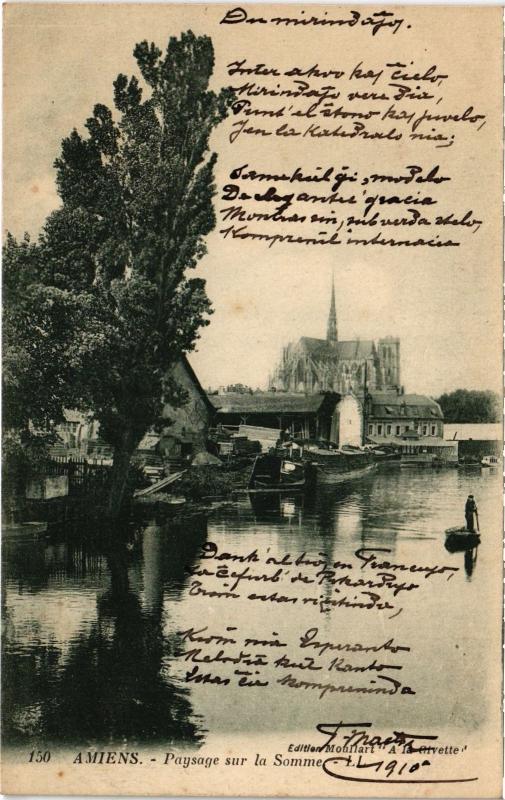 Du mirindaĵoj.
Inter akvo kaj ĉielo,
Mirindaĵo vere dia,
Punt' el ŝtono kaj juvelo,
Jen la Katedralo nia;
Samekiel ĝi, modelo
De elegantec' gracia
Montras sin, sub verda stelo,
Komprenil' internacia
Dank' al tio, en Francujo,
La ĉefurb' de Pokardujo
Ĉiam estas vizitinda,
Kiom nia Esperanto
Melodia kiel Kanto
Estas ĉie kompreninda
1910
Edition Mouflart "A la Civette"
150 AMIENS. - Paysage sur la Somme. - LL.